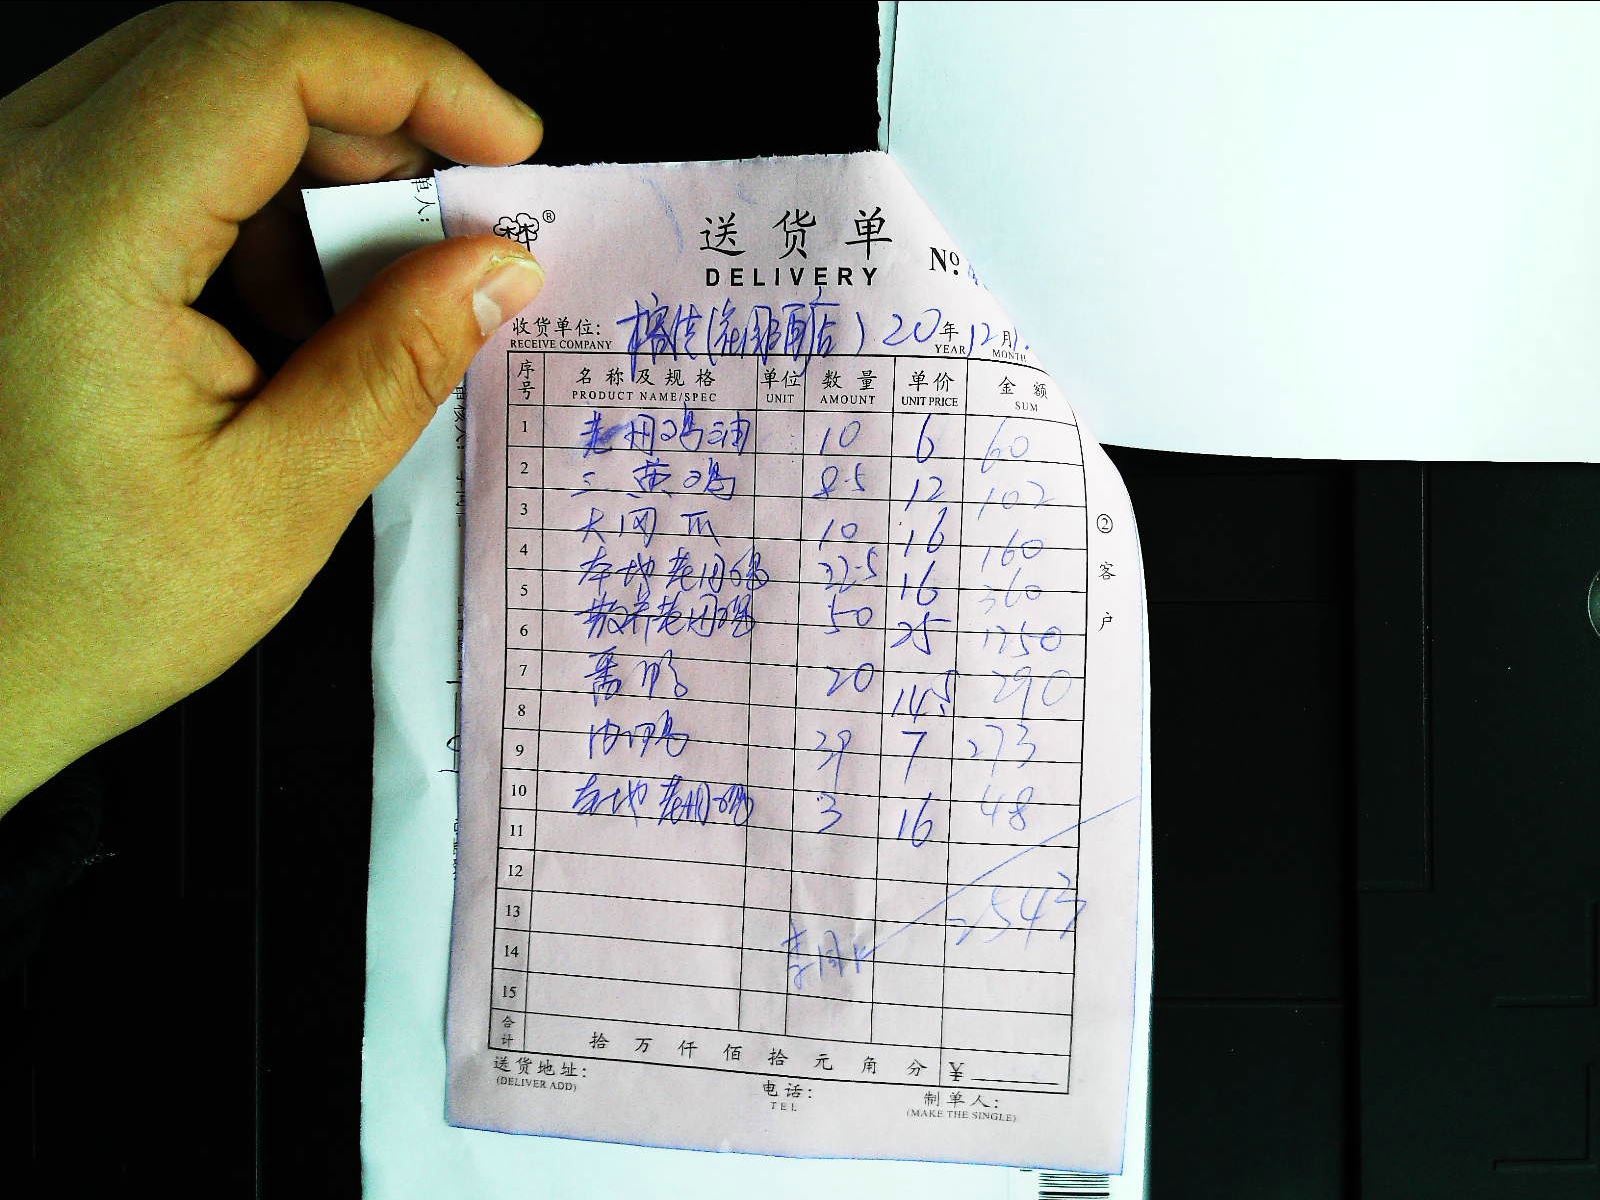 送货单
DELIVERY
No.
收货单位: (花园酒店) 20年12月1.
RECEIVE COMPANY YEAR MONTH
序号 名称及规格 单位 数量 单价 金额
PRODUCT NAME/SPEC UNIT AMOUNT UNIT PRICE SUM
1 老用鸡油 10 6 60
2 三黄鸡 8.5 12 102
3 大网爪 10 16 160
4 本地老用鸡 22.5 16 360
5 散养老用鸡 50 25 1250
6
7 番鸭 20 14.5 290
8
9 鸡 39 7 273
10 本地老用鸡 3 16 48
11
12
13 2543
14
15
合计 拾万仟佰拾元角分 ¥
送货地址:
(DELIVER ADD)
电话:
TEL
制单人:
(MAKE THE SINGLE)
②客户
单人: